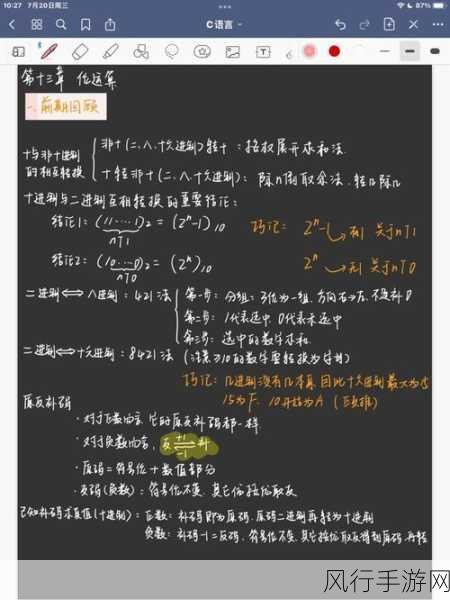 10:27 7月20日周三
C语言
第十三章 位运算
一、前期回顾
十与非十进制的相互转换
非十(二、八、十六进制)转十:按权展开求和法.
十转非十(二、八、十六进制):除n倒取余法.转几除几
十进制与二进制互相转换的重要结论:
结论1:(11…1)₂ = (2ⁿ-1)₁₀
n个1
巧记: 2ⁿ-1 → n个1
结论2:(10…0)₂ = (2ⁿ)₁₀
n个0
2ⁿ → n个0
二进制⇔八进制:421法
第一步:分组:3位为一组.方向右→左.不足补0
第二步:1代表选中 0代表未选中
第三步:选中的数字求和.
二进制⇔十六进制:8421法(注意≥10的数字需要转换为字母)
巧记:几进制没有几本身,因此十六进制最大为15
15为F. 10开始为A
原反补码
·对于正数而言,它的原反补码都一样
·对于负数而言,反 +1 -1 补
·原码=符号位+数值部分
·反码(负数):符号位不变.其它位按位取反
已知补码求真值(十进制):正数:补码即为原码.原码二进制再转为十进制
负数:补码-1=反码.符号位不变.其它按位取反得到原码.再转
风行手游网